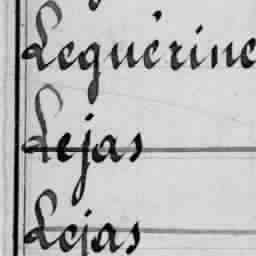 Lequérine
Lejas
Lejas